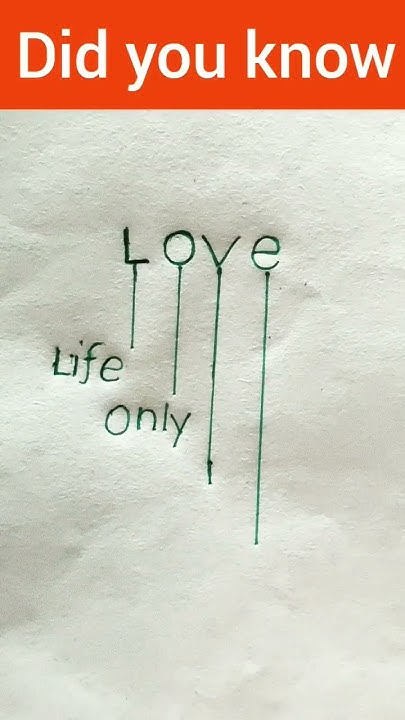 Did you know
Love
Life
only